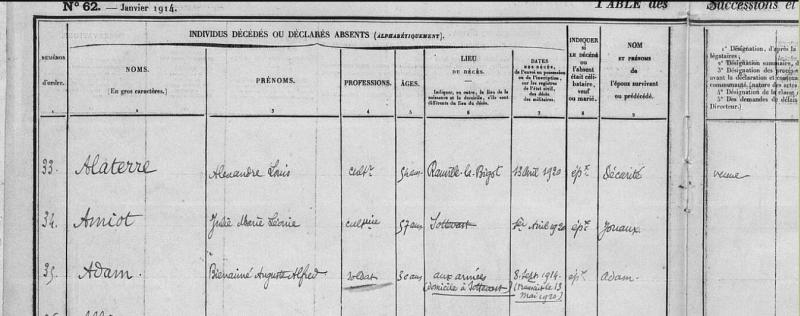 N° 62. — Janvier 1914.
TABLE des
Successions et
INDIVIDUS DÉCÉDÉS OU DÉCLARÉS ABSENTS (ALPHABÉTIQUEMENT).
NUMÉROS
d'ordre.
NOMS.
(En gros caractères.)
PRÉNOMS.
PROFESSIONS.
ÂGES.
LIEU
DU DÉCÈS.
Indiquer, en outre, le lieu de la
naissance et le domicile, s'ils sont
différents du lieu du décès.
DATES
DES DÉCÈS,
de l'envoi en possession
ou de l'inscription,
sur les registres
de l'état civil,
des décès
des militaires.
INDIQUER
si
LE DÉCÉDÉ
ou
l'absent
était céli-
bataire,
veuf
ou marié.
NOM
ET PRÉNOMS
de
l'époux survivant
ou prédécédé.
1° Désignation, d'après la
légataires;
2° Désignation sommaire, d
3° Désignation des
avant la déclaration et
communauté (nature des actes
4° Désignation de la
5° Des demandes de délais
Directeur.)
1 2 3 4 5 6 7 8 9
33. Alaterre Alexandre Louis cultr 54 ans Rauville-la-Bigot 13 Avril 1920 épx Décarité veuve
34. Amiot Julie Marie Léonie cultrice 57 ans Sottevast 1er Avril 1920 épse Jouaux
35. Adam. Bienaimé Auguste Alfred soldat 30 ans aux armées 8 Sept. 1914. épx Adam.
(domicile à Sottevast) (transcrit le 13
mai 1920)